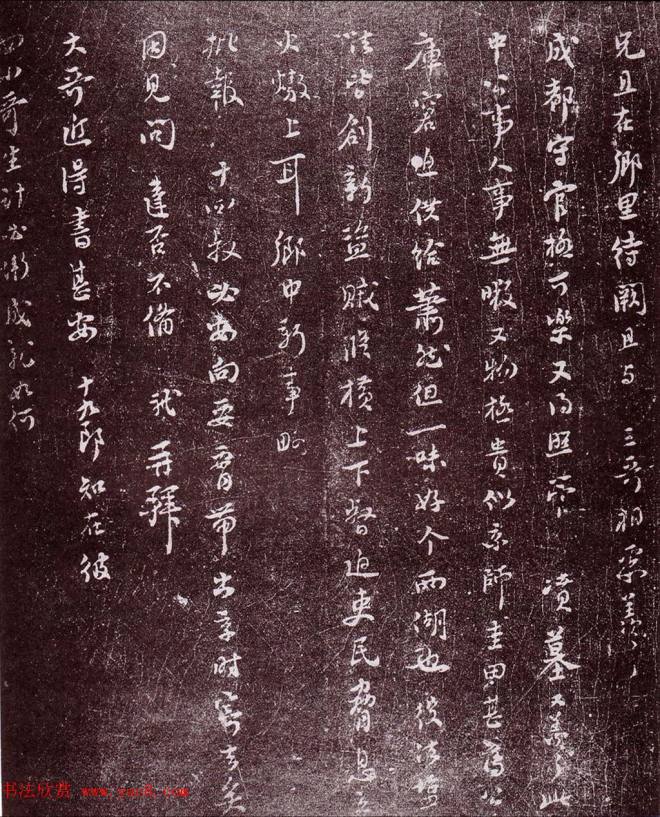 兄且在鄉里待闕且与三哥相聚羡羡
成都守官極可樂又得照管墳墓又羡又羡此
中公事人事無暇又物極貴似京師圭田甚薄公
庫窘迫供給蕭然但一味好个西湖也役法鹽
法皆創新盜賊縱橫上下督迫吏民脅息立
火燉上耳鄉中新事略
批報十四叔必安向要帶出京時寄去矣
因見問達否不備軾再拜
大哥近得書甚安十九郎知在彼
四小哥生計必漸成就如何
书法欣赏 www.yac8.com